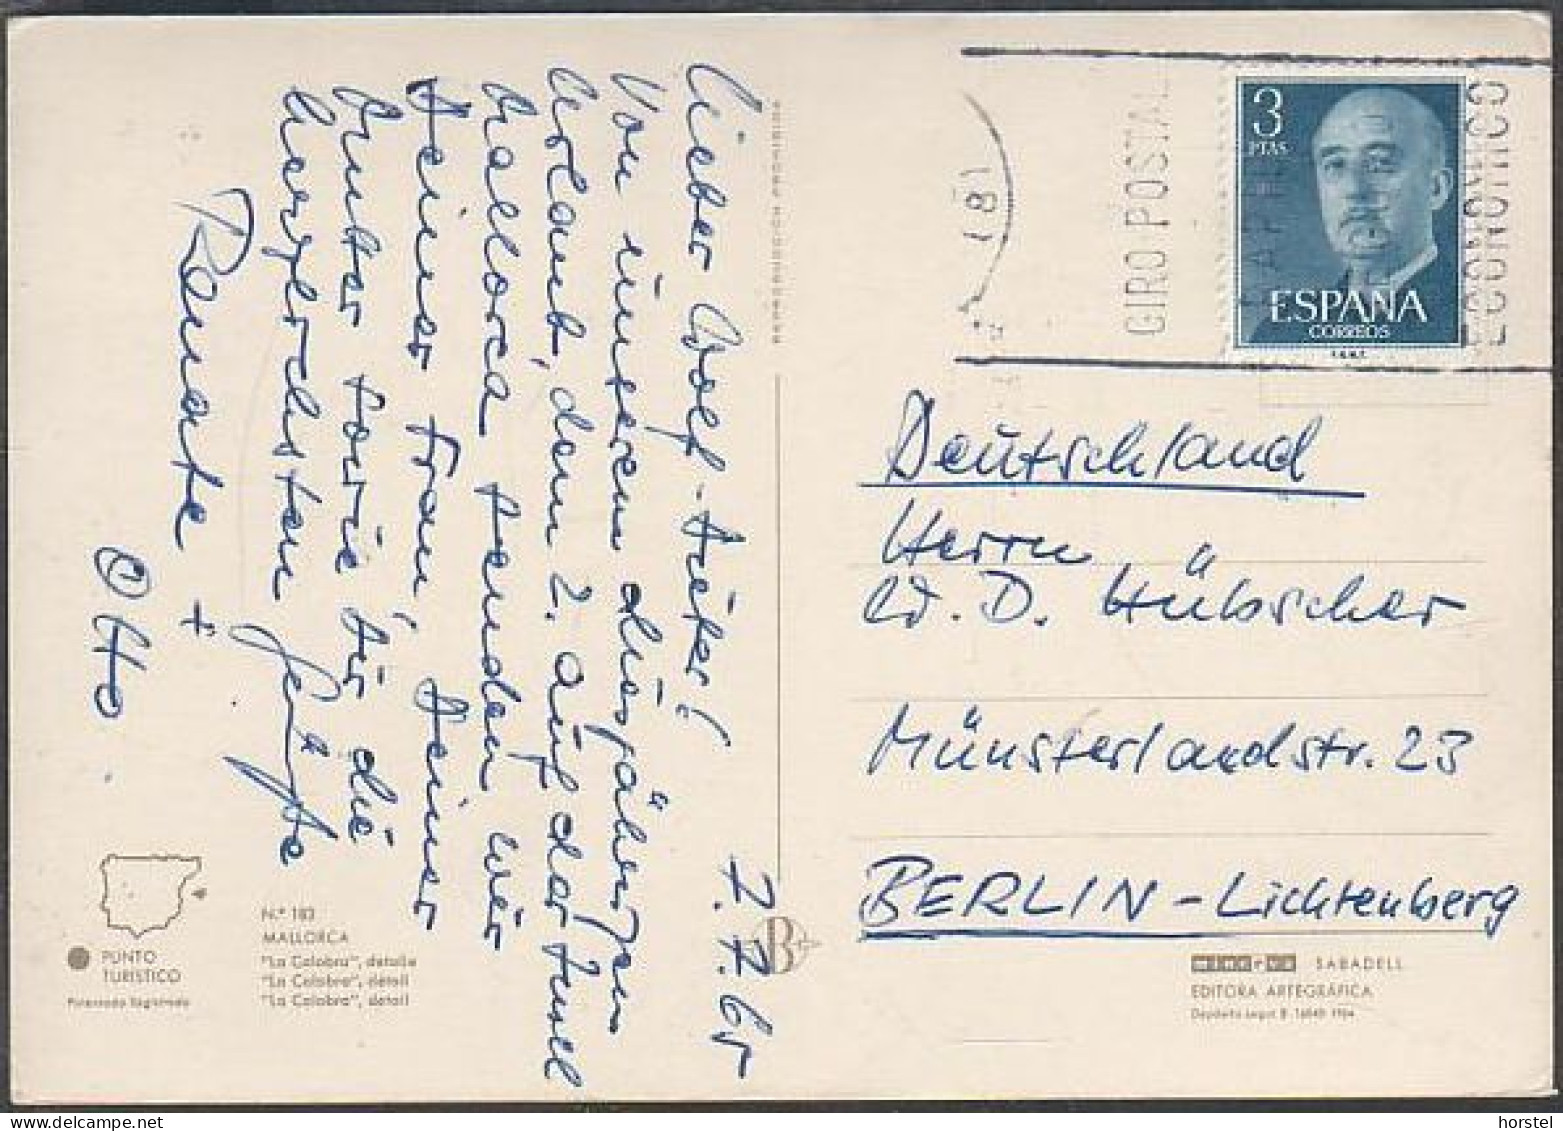 7.7.65
Lieber Wolf-Dieter!
Von unserem diesjährigen
Urlaub, dem 2. auf der Insel
Mallorca senden wir
Deiner Frau, Deiner
Mutter sowie Dir die
herzlichsten Grüße
Renate +
Otto.
REPRODUCCIÓN PROHIBIDA
PUNTO
TURISTICO
N.° 183
MALLORCA
"La Calobra", detalle
"La Calobra", détail
"La Calobra", detail
B
(8)
GIRO POSTAL
ECONOMICO
3
PTAS
ESPAÑA
CORREOS
F.N.M.T.
Deutschland
Herrn
W. D. Hübscher
Münsterlandstr. 23
BERLIN - Lichtenberg
minerva SABADELL
EDITORA ARTEGRÁFICA
horstel